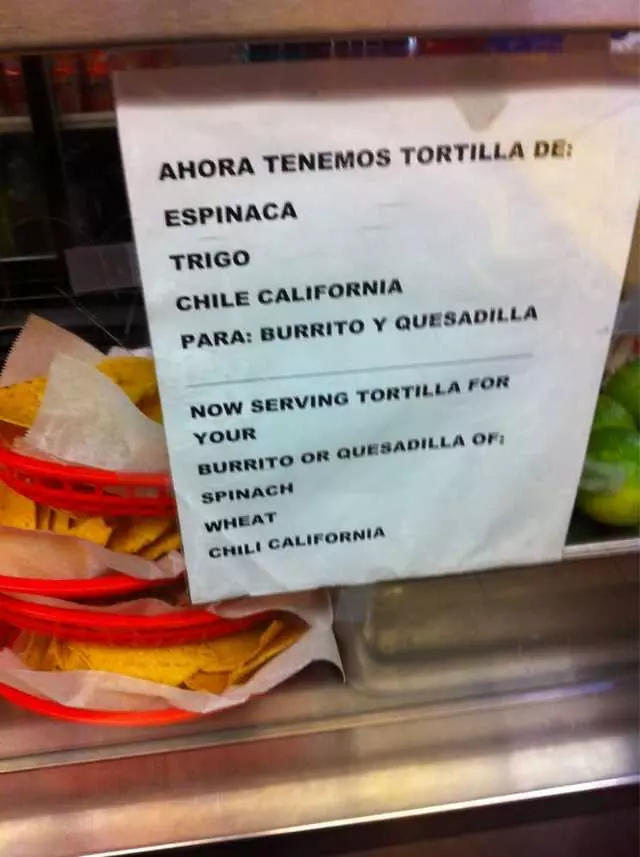 AHORA TENEMOS TORTILLA DE:
ESPINACA
TRIGO
CHILE CALIFORNIA
PARA: BURRITO Y QUESADILLA
NOW SERVING TORTILLA FOR
YOUR
BURRITO OR QUESADILLA OF:
SPINACH
WHEAT
CHILI CALIFORNIA